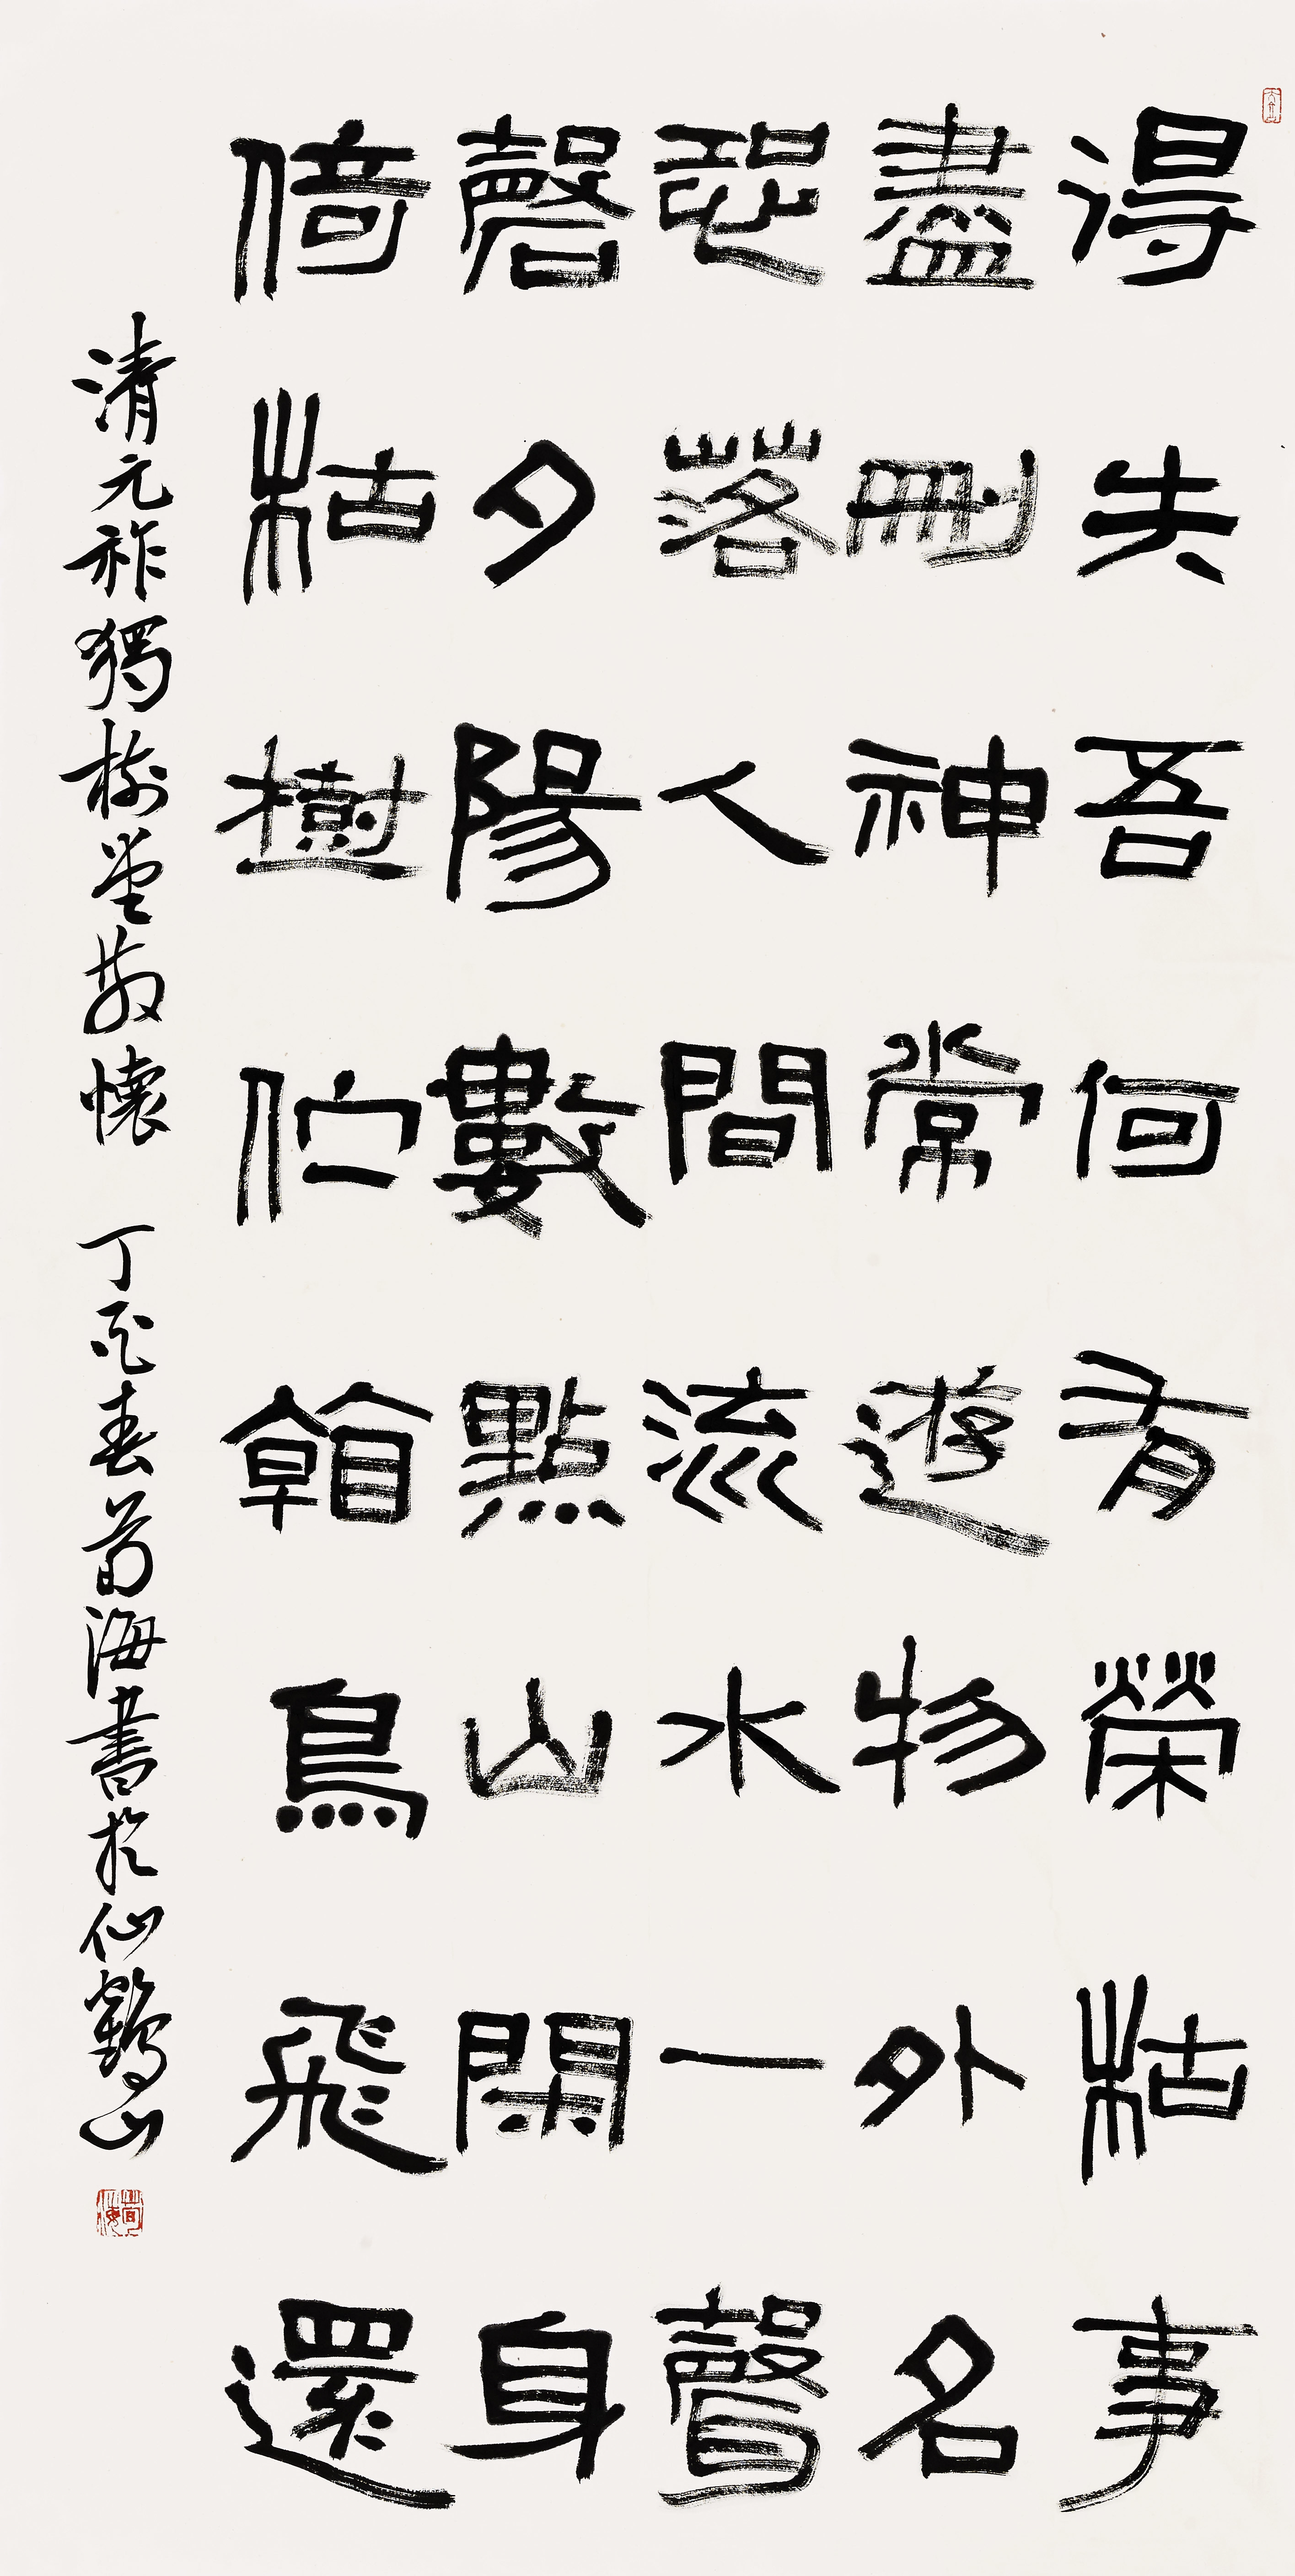 得失吾何有榮枯事
盡刪神常遊物外名
恐落人間流水一聲
磬夕陽數點山閑身
倚枯樹佇看鳥飛還
清元祚獨樹堂散懷 丁酉春荀海書於仙鶴山
荀海